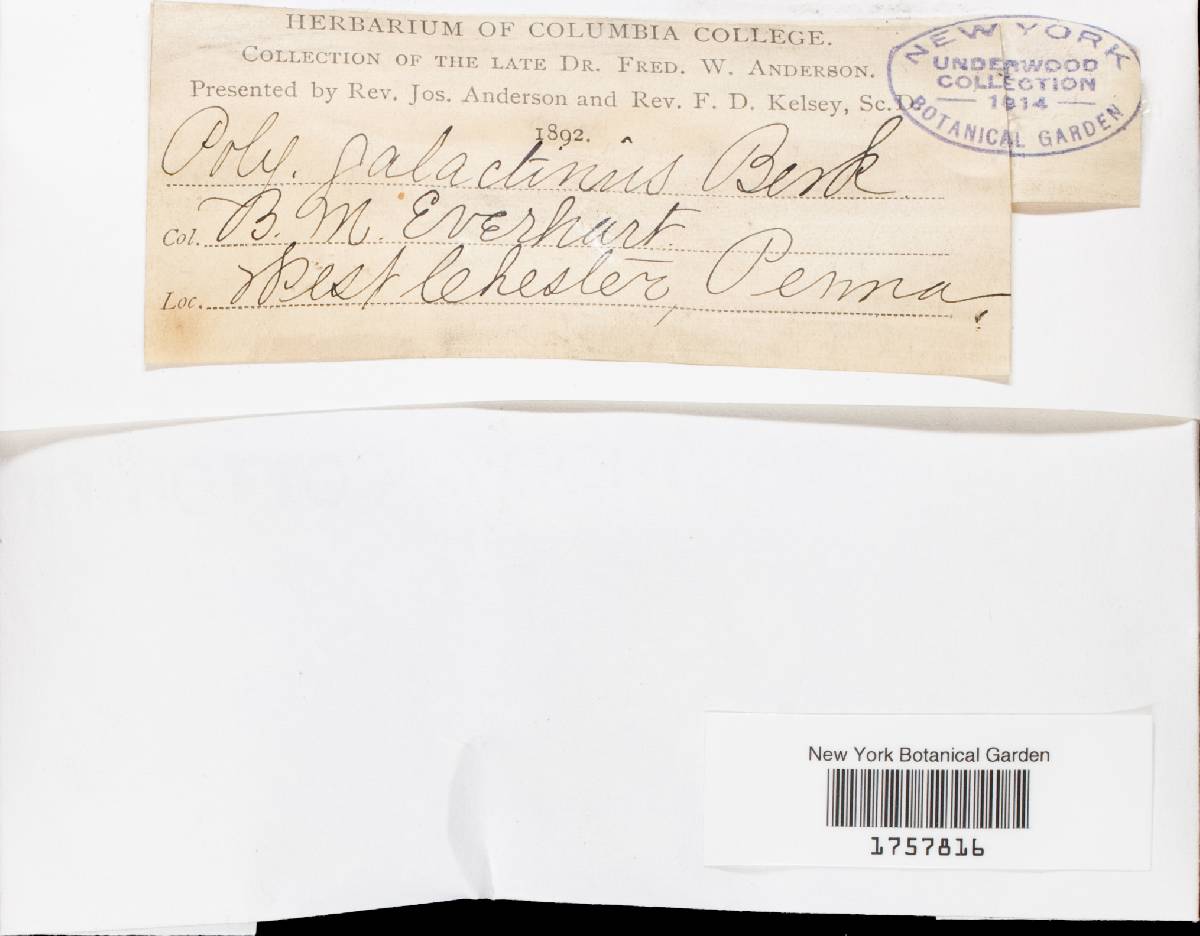 HERBARIUM OF COLUMBIA COLLEGE.
COLLECTION OF THE LATE DR. FRED. W. ANDERSON.
Presented by Rev. Jos. Anderson and Rev. F. D. Kelsey, Sc.D.
1892.
Poly. galactinus Berk
Col. B. M. Everhart.
Loc. West Chester, Penna.
NEW YORK
UNDERWOOD
COLLECTION
— 1914 —
BOTANICAL GARDEN
New York Botanical Garden
1757816